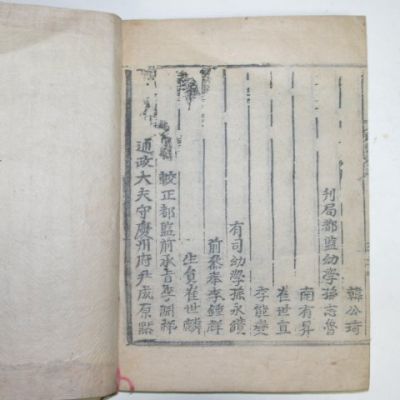 韓公琦
刊局都監幼學孫志魯
南有昇
崔世直
李能燮
有司幼學孫永
前參奉李鍾
生員崔世麟
較正都監前承旨李祥
通政大夫守慶州府尹成原黙